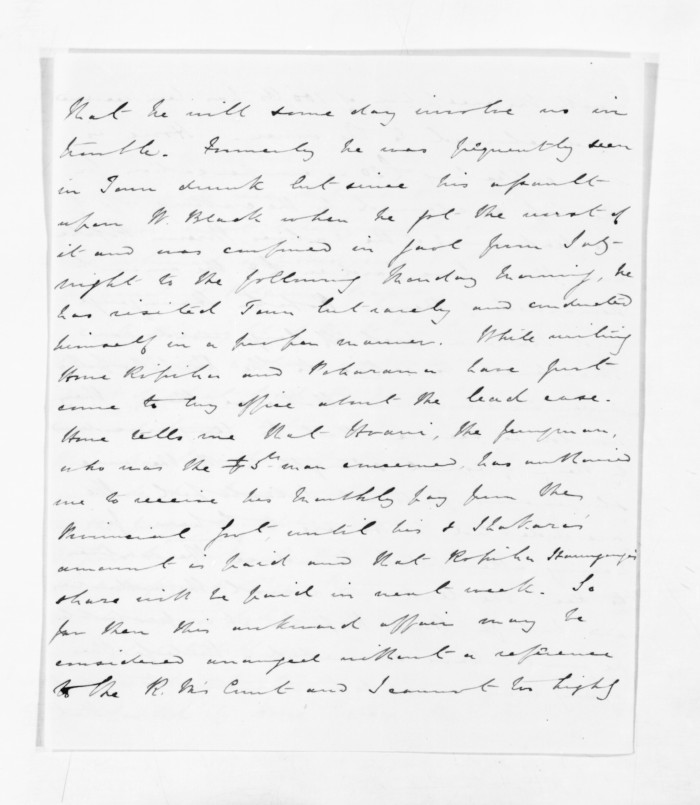 that he will some day involve us in
trouble. Formerly he was frequently seen
in Town drunk but since his assault
upon W. Black when he got the worst of
it and was confined in gaol from Saty
night to the following Monday Morning, he
has visited Town but rarely and conducted
himself in a proper manner. While writing
Hone Ropiha and Paharama have just
come to my office about the lead case.
Hone tells me that Hoani, the ferryman,
who was the 5th man concerned, has authorised
me to receive his monthly pay from the
Provincial Govt. until his &
amount is paid and that Ropiha
share will be paid in next week. So
far then this awkward affair may be
considered arranged without a reference
to the R. M's Court and I cannot too highly